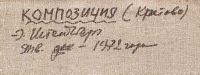 КОМПОЗИЦИЯ (Кратово)
Э. Штейнберг
Тв. дек - 1972 года